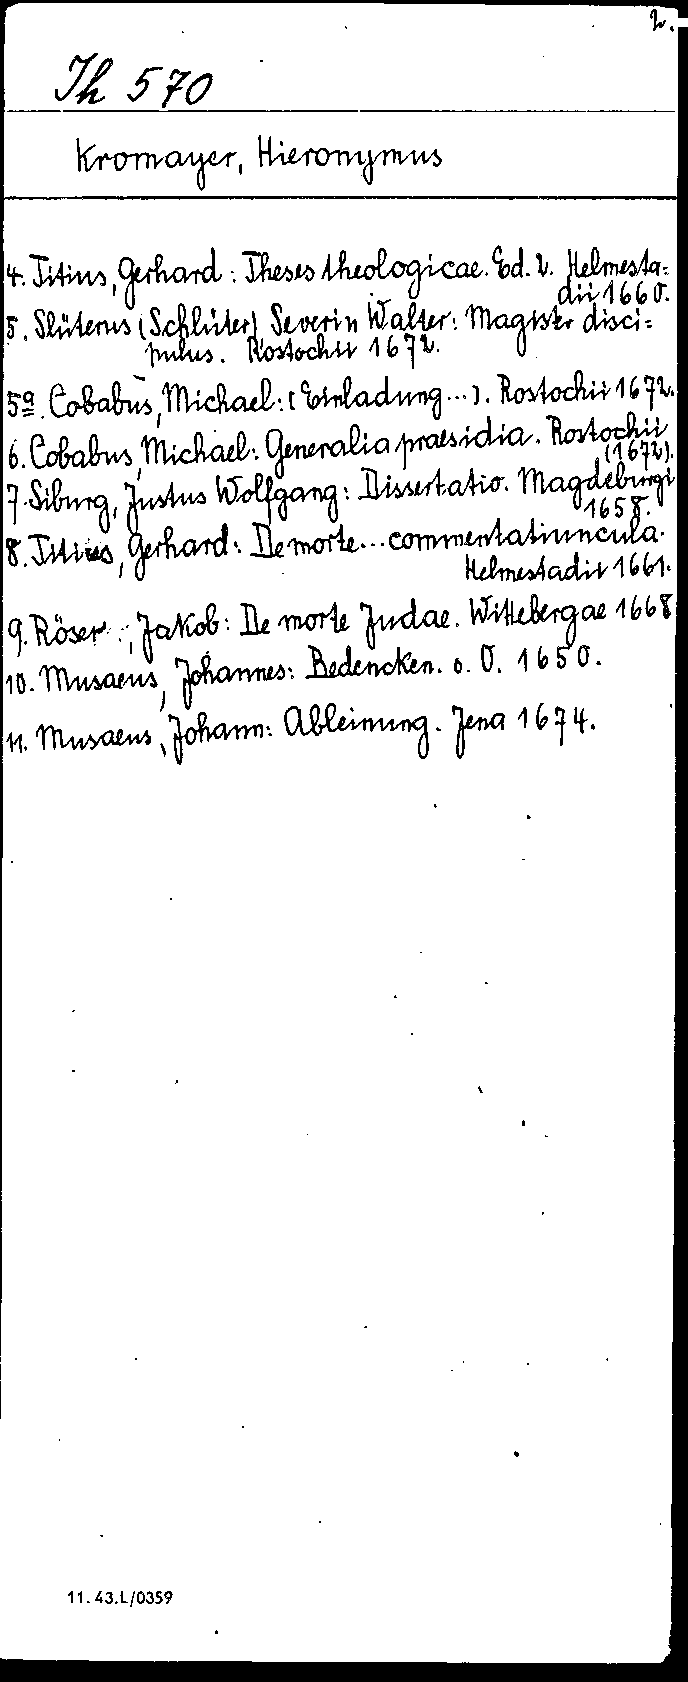 2.
Th 570
Kromayer, Hieronymus
4. Titius, Gerhard: Theses theologicae. Ed. 2. Helmesta=
dii 1660.
5. Slüterus (Schlüter) Severin Walter: Magister disci=
pulus. Rostochii 1672.
5a. Cobabus, Michael: (Einladung...). Rostochii 1672.
6. Cobabus, Michael: Generalia praesidia. Rostochii
(1672).
7. Siburg, Justus Wolfgang: Dissertatio. Magdeburgi
1658.
8. Titius, Gerhard: De morte... commentatiuncula.
Helmestadii 1661.
9. Röser, Jakob: De morte Judae. Wittebergae 1668
10. Musaeus, Johannes: Bedencken. o. O. 1650.
11. Musaeus, Johann: Ableinung. Jena 1674.
11.43.L/0359